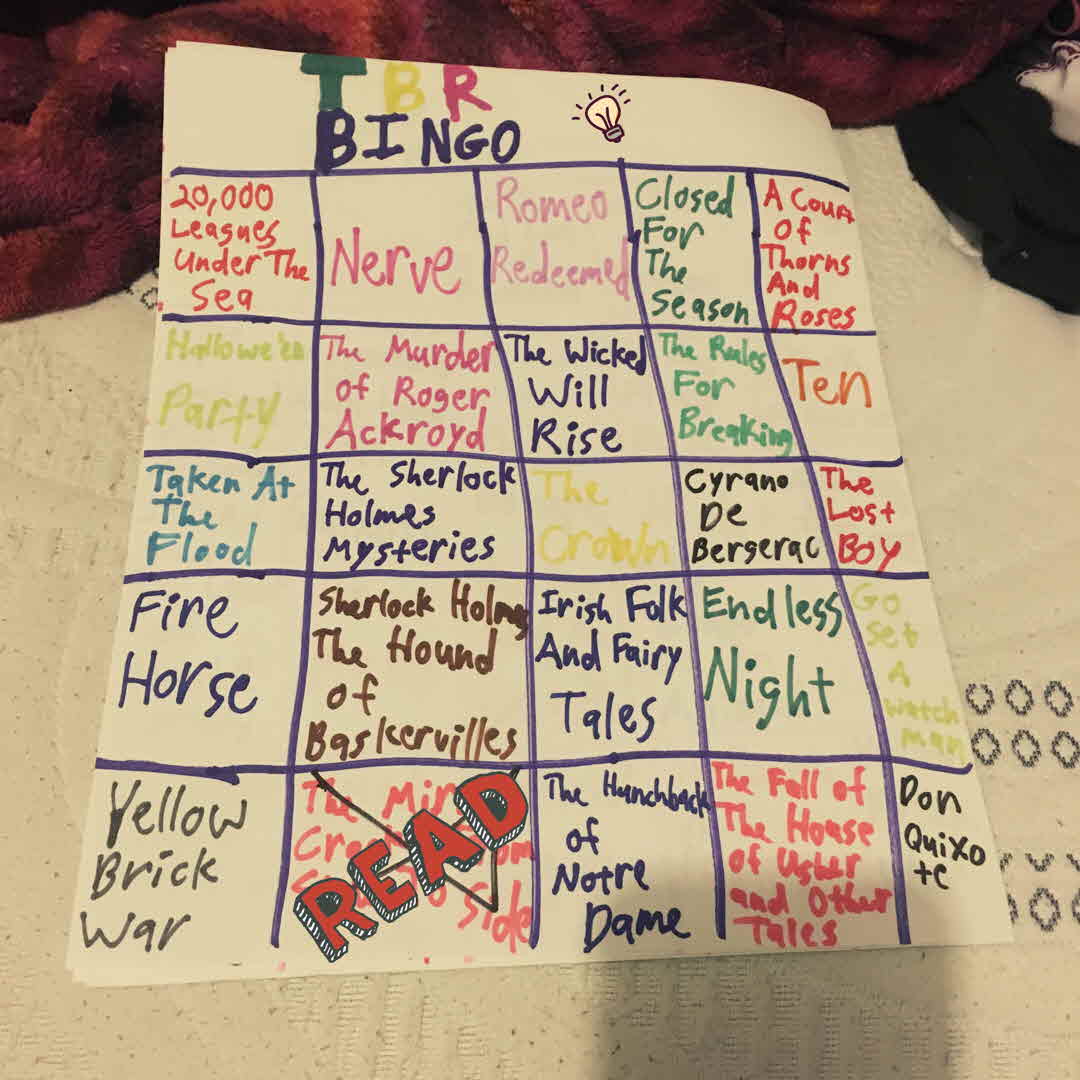 TBR
BINGO
20,000
Leagues
Under The
Sea
Nerve
Romeo
Redeemed
Closed
For
The
Season
A Court
Of
Thorns
And
Roses
Hallowe'en
Party
The Murder
of Roger
Ackroyd
The Wicked
Will
Rise
The Rules
For
Breaking
Ten
Taken At
The
Flood
The Sherlock
Holmes
Mysteries
The
Crown
Cyrano
De
Bergerac
The
Lost
Boy
Fire
Horse
Sherlock Holmes
The Hound
of
Baskervilles
Irish Folk
And Fairy
Tales
Endless
Night
Go
Set
A
Watch
man
Yellow
Brick
War
The
Side
READ
The Hunchback
of
Notre
Dame
The Fall of
The House
of Usher
and Other
Tales
Don
Quixo
te